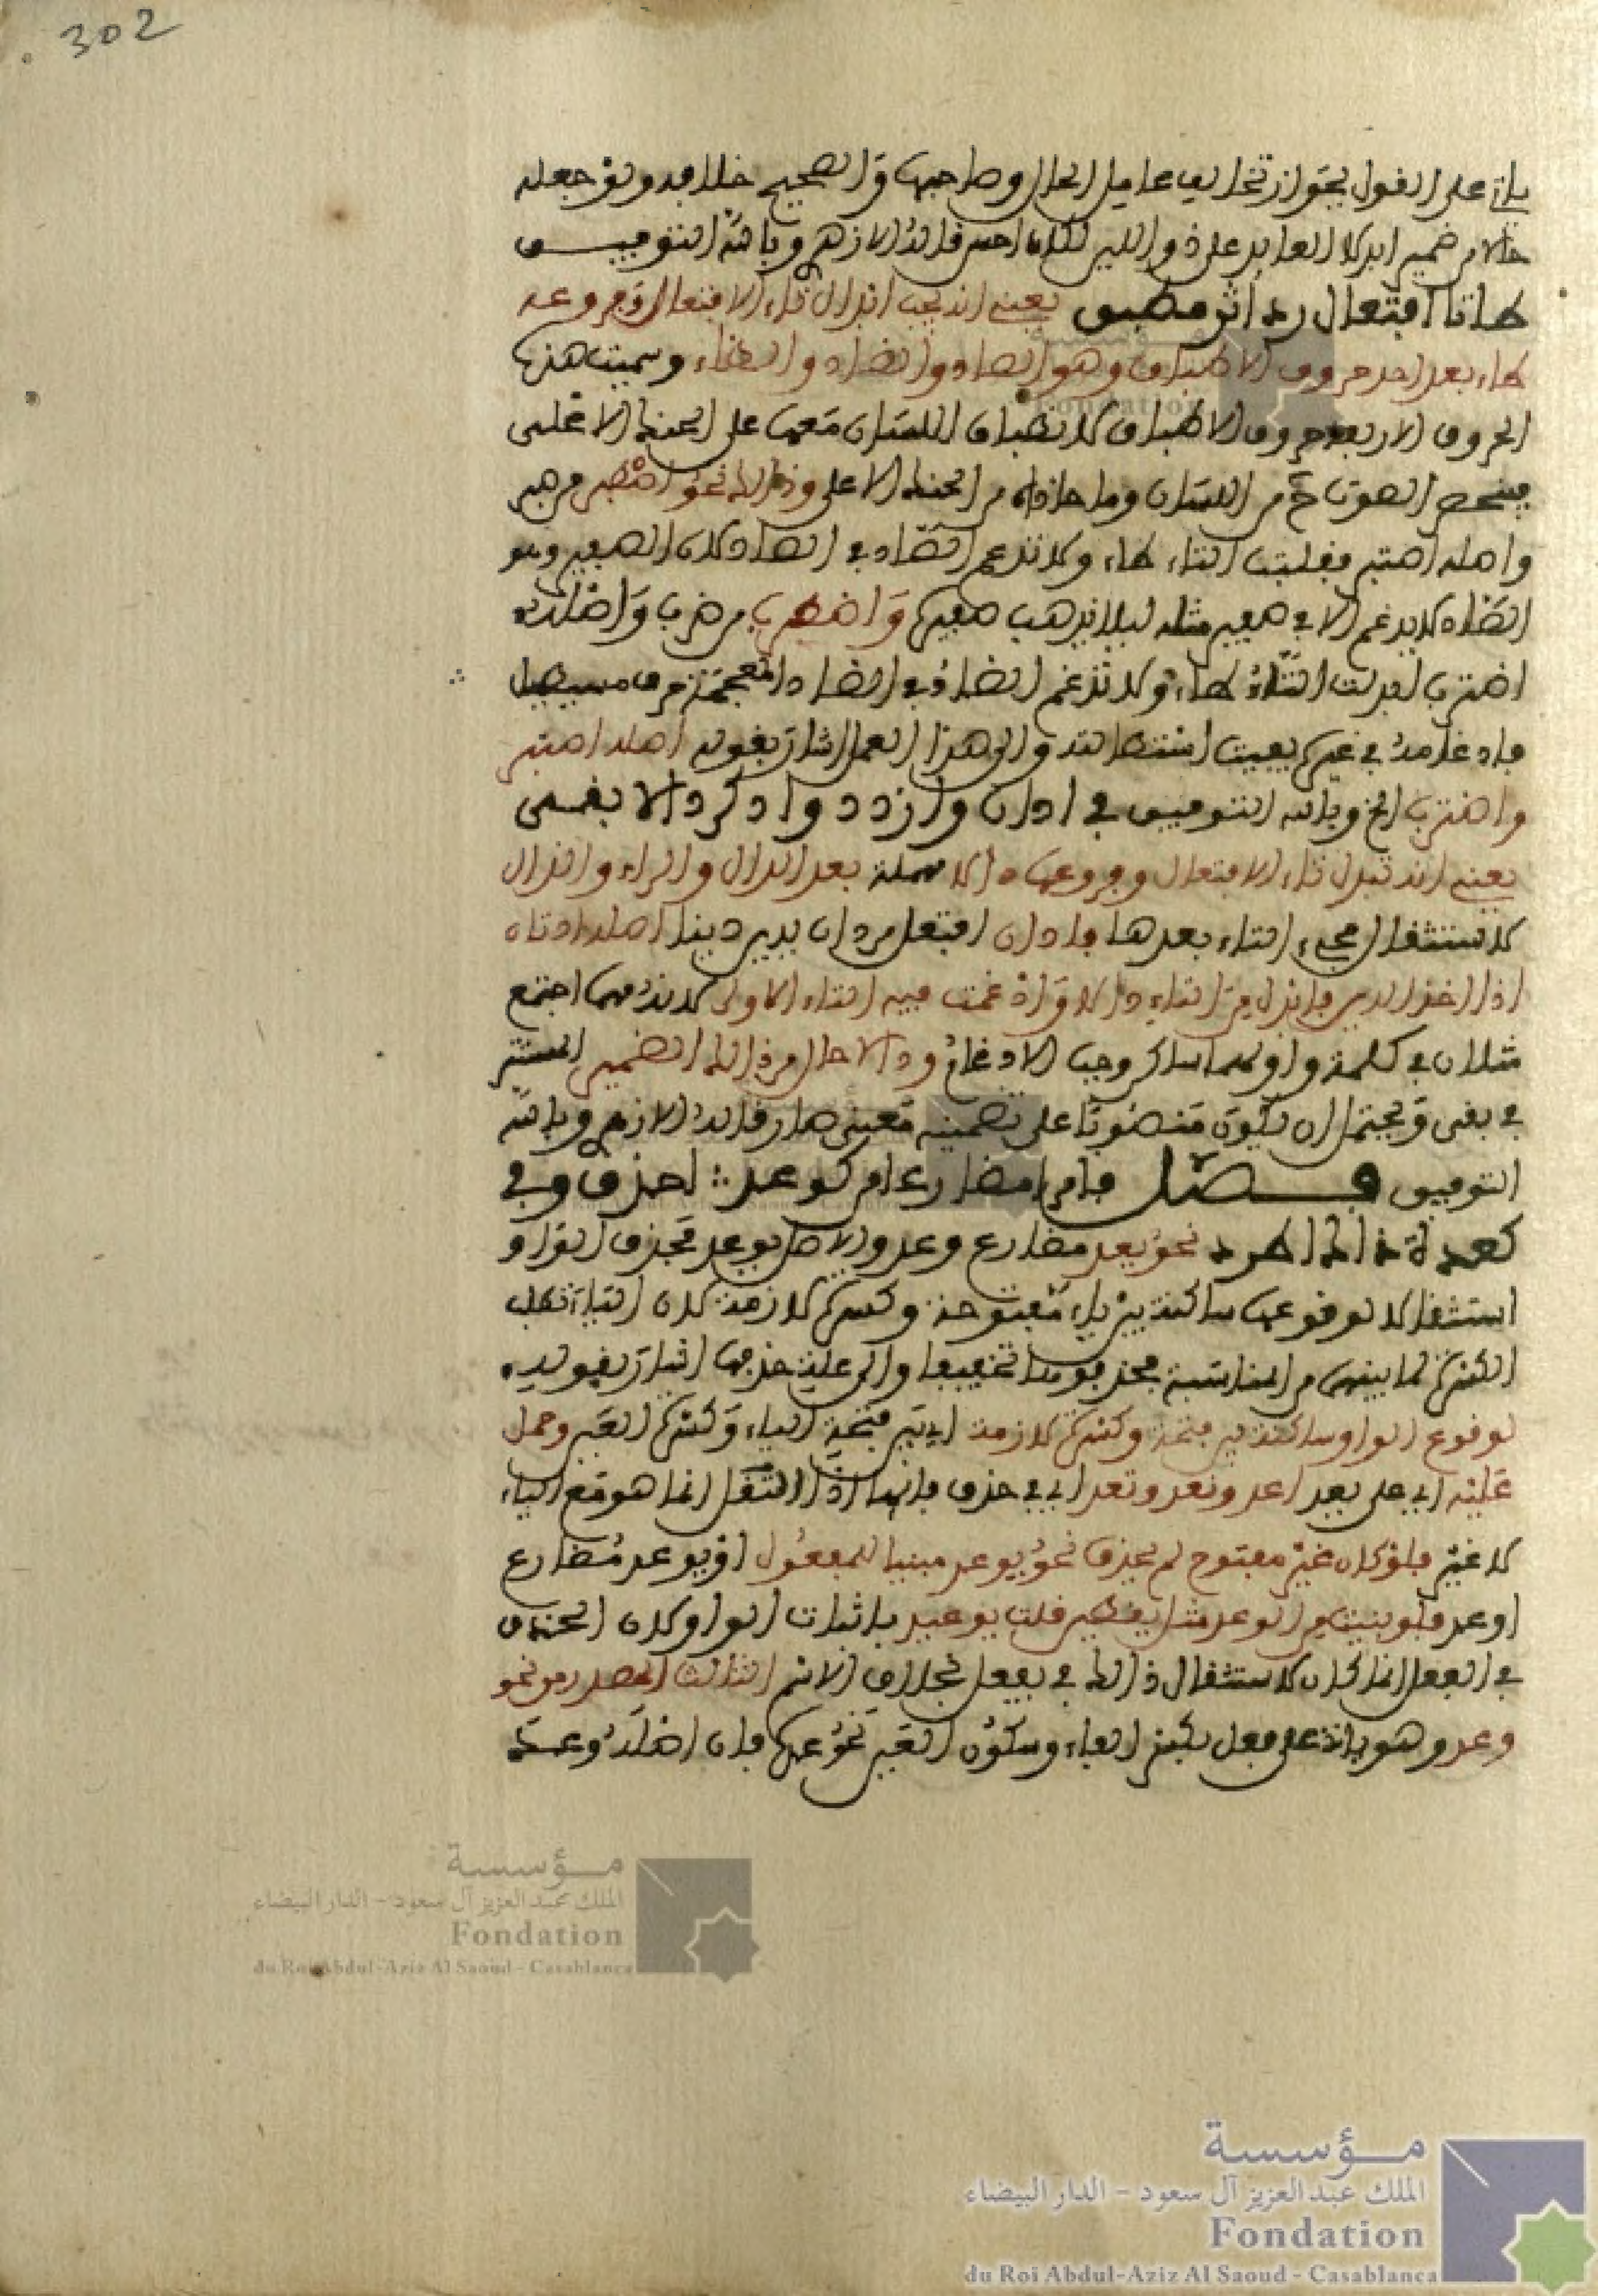 302
على القول بجواز تخالف عامل الحال وصاحبها والصحيح خلافه ولو جعله
حالا من ضمير ابدلا العايد على ذو اللين لكان احسن قاله الازهري وبالله التوفيـــق
طا تا افتعال رد اثر مطبق يعني انه يجب ابدال تاء الافتعال وفروعه
طاء بعد احد حروف الاطباق وهو الصاد والضاد والطاء وسميت هذه
الحروف الاربعة حروف الاطباق لانطباق اللسان معها على الحنك الاعلى
فينحصر الصوت ح من اللسان وما حاذاه من الحنك الاعلى وذلك نحو اصطبر من صبر
واصله اصتبر فقلبت التاء طاء ولا تدغم الصاد في الطاء لان الصفير وهو
الصاد لا يدغم الا في صفير مثله ليلا يذهب صفيره واضطرب من ضرب واصله
اضترب ابدلت التاء طاء ولا تدغم الضاد في الطاء والضاد المعجمة حرف مستطيل
فادغامه في غيره يفيت استطالته والى هذا العمل اشار بقوله اصله اصتبر
واضترب الخ وبالله التوفيق في ادان وازدد وادكر دالا بقـــى
يعني انه تبدل تاء الافتعال وفروعها دالا مهملة بعد الدال والزاء والذال
لاستثقال مجيء التاء بعدها فادان افتعل من دان يدين دينا اصله ادتان
اذا اخذ الدين فابدل من التاء دالا وادغمت فيه التاء الاولى لانه مهما اجتمع
مثلان في كلمة واولهما ساكن وجب الادغام ودالا حال من ذلك الضمير المستتر
في بقى ويحتمل ان يكون منصوبا على تضمينه معنى صار قاله الازهري وبالله
التوفيق فـــصل فا امر او مضارع من كوعد : احذف وفي
كعدة ذاك اطرد نحو يعد مضارع وعد والاصل يوعد فحذف الواو
استثقالا لوقوعها ساكنة بين ياء مفتوحة وكسرة لازمة لان الياء تطلب
الكسرة لما بينهما من المناسبة فحذفوها تخفيفا والى علة حذفها اشار بقوله
لوقوع الواو ساكنة بين فتحة وكسرة لازمة اي بين فتحة الياء وكسرة العين وحمل
عليه اي على يعد اعد ونعد وتعد اي في حذف فائها اذ الثقل انما هو مع الياء
لا غير فلو كان غير مفتوح لم يحذف نحو يوعد مبنيا للمفعول او يوعد مضارع
اوعد فلو بنيت من الوعد مثل يقطين قلت يوعيد باثبات الواو لان الحذف
في الفعل انما كان لاستثقال ذلك في يفعل بخلاف الاسم الثالث المصدر من نحو
وعد وهو بانه على فعل بكسر الفاء وسكون العين نحو عدة فان اصله وعد
مؤسسة
الملك عبد العزيز آل سعود - الدار البيضاء
Fondation
du Roi Abdul-Aziz Al Saoud - Casablanca
مؤسسة
الملك عبد العزيز آل سعود - الدار البيضاء
Fondation
du Roi Abdul-Aziz Al Saoud - Casablanca